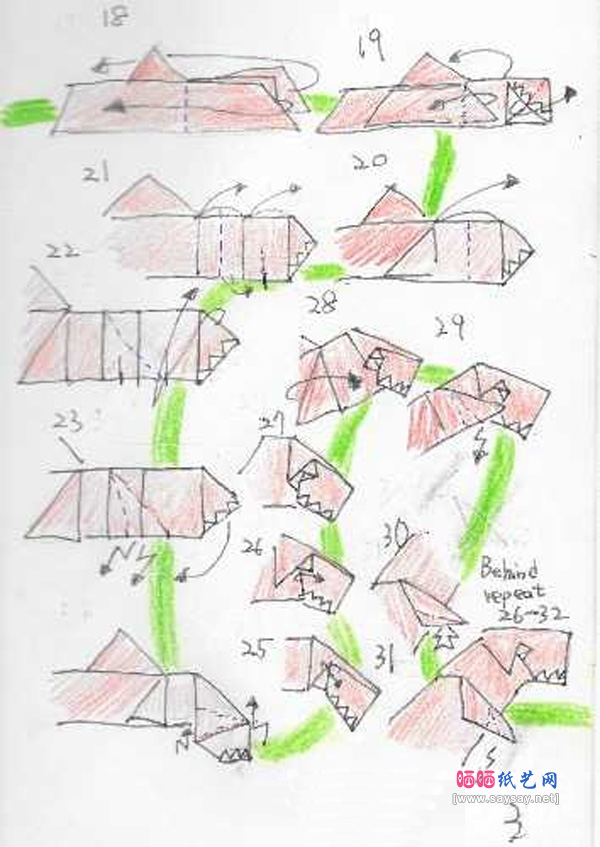 18
19
21
20
22
28
29
23
27
26
30
Behind
repeat
26~32
25
31
晒晒纸艺网
[www.saysay.net]
3